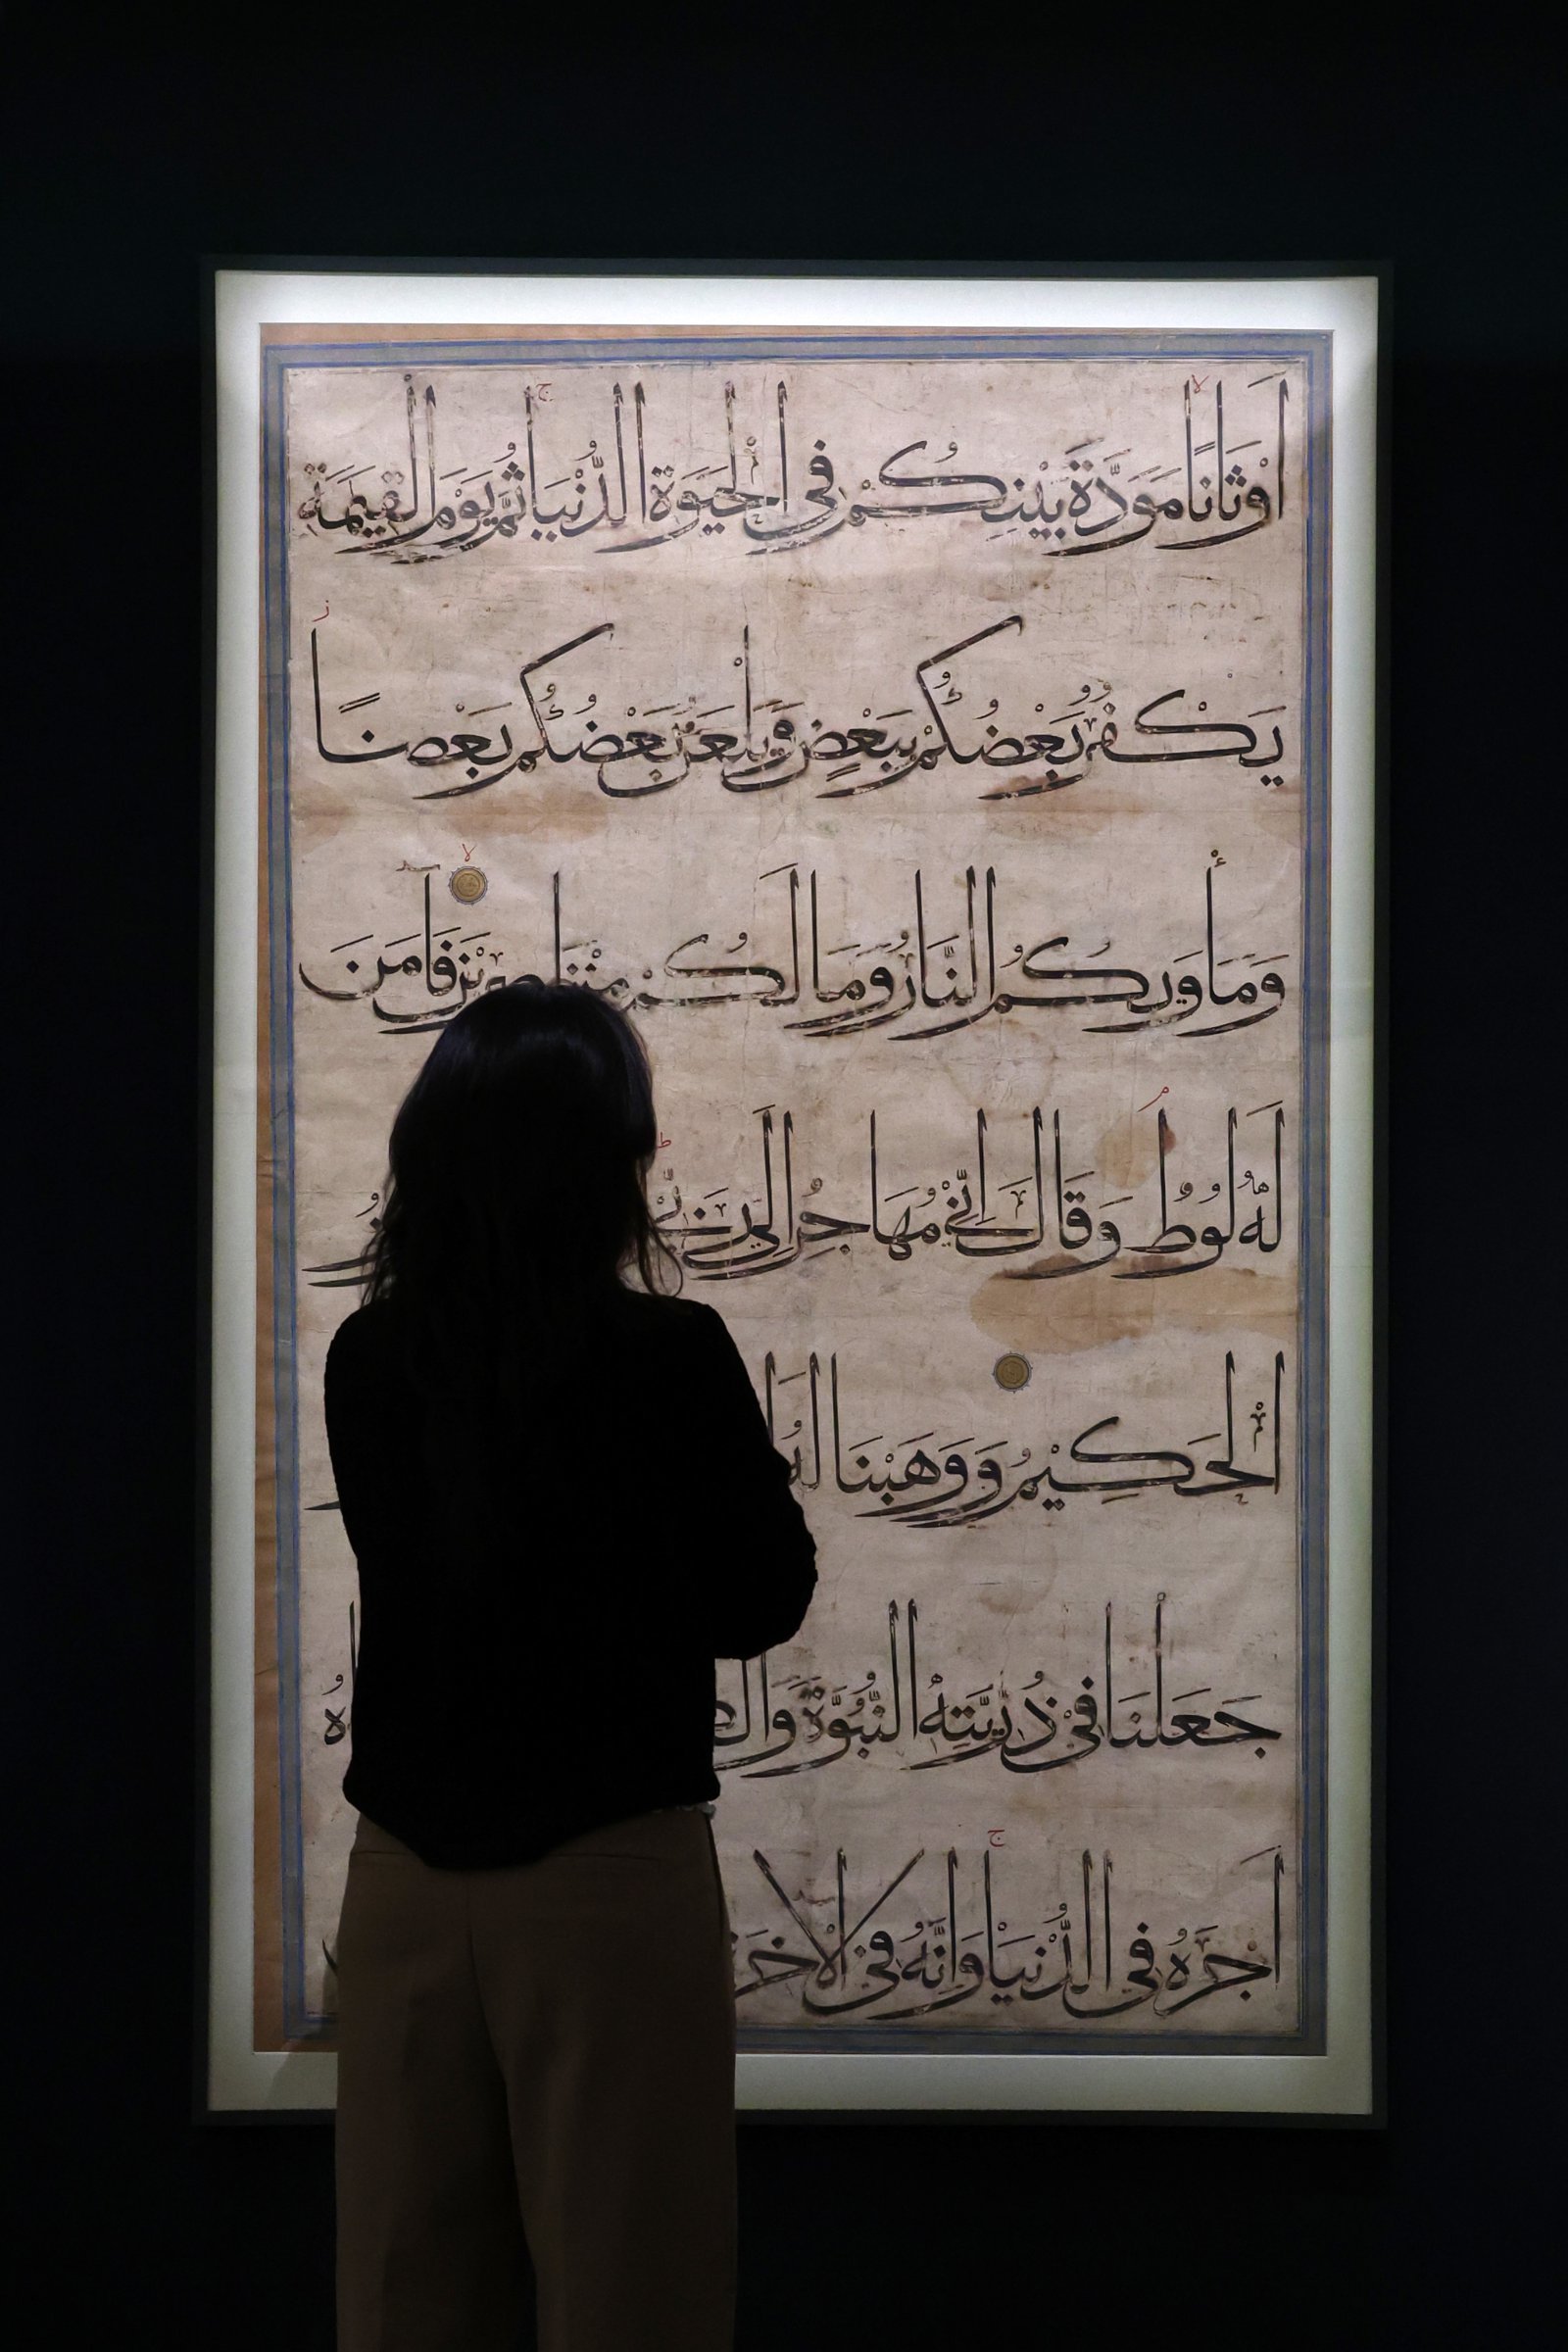 اَوْثَانًا مَوَدَّةَ بَيْنِكُمْ فِى الْحَيٰوةِ الدُّنْيَا ثُمَّ يَوْمَ الْقِيٰمَةِ
يَكْفُرُ بَعْضُكُمْ بِبَعْضٍ وَيَلْعَنُ بَعْضُكُمْ بَعْضًا
وَمَأْوٰىكُمُ النَّارُ وَمَا لَكُمْ مِنْ نَاصِرِينَ فَاٰمَنَ
لَهُ لُوطٌ وَقَالَ اِنِّى مُهَاجِرٌ اِلٰى
الْحَكِيمُ وَوَهَبْنَا لَهُ
جَعَلْنَا فِى ذُرِّيَّتِهِ النُّبُوَّةَ
اَجْرَهُ فِى الدُّنْيَا وَاِنَّهُ فِى